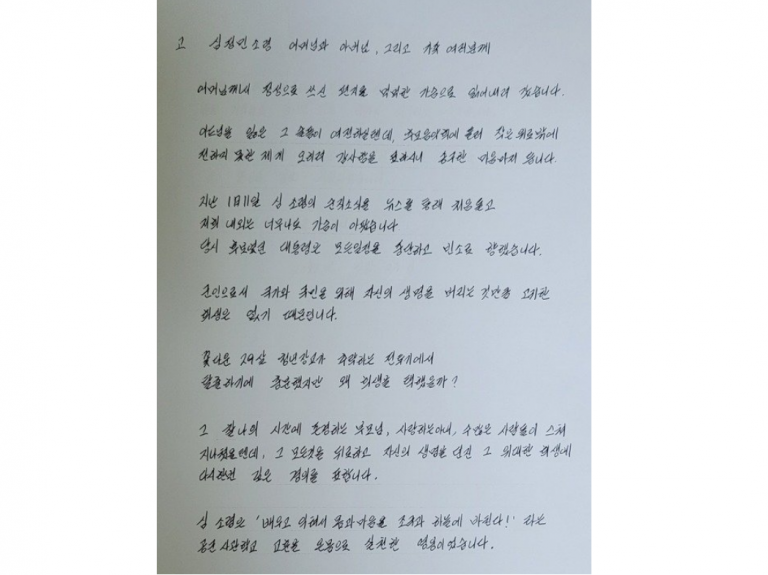 고 심정민소령 아버님과 어머님, 그리고 가족 여러분께
어머님께서 정성으로 쓰신 편지를 먹먹한 가슴으로 읽어내려 갔습니다.
아드님을 잃은 그 슬픔이 여전하실텐데, 추모음악회에 들러 작은 위로밖에
전하지 못한 제게 오히려 감사함을 표하시니 송구한 마음마저 듭니다.
지난 1月11일 심 소령의 순직소식을 뉴스를 통해 처음듣고
저희 내외는 너무나도 가슴이 아팠습니다
당시 후보였던 대통령은 모든일정을 중단하고 빈소로 향했습니다.
군인으로서 국가와 국민을 위해 자신의 생명을 버리는 것만큼 고귀한
희생은 없기 때문입니다.
꽃다운 29살 청년장교가 추락하는 전투기에서
탈출하기에 충분했지만 왜 희생을 택했을까?
그 찰나의 시간에 존경하는 부모님, 사랑하는아내, 수많은 사람들이 스쳐
지나갔을텐데, 그 모든것을 뒤로하고 자신의 생명을 던진 그 위대한 희생에
다시한번 깊은 경의를 표합니다.
심 소령은 '배우고 익혀서 몸과마음을 조국과 하늘에 바친다!' 라는
공군사관학교 교훈을 온몸으로 실천한 영웅이었습니다.